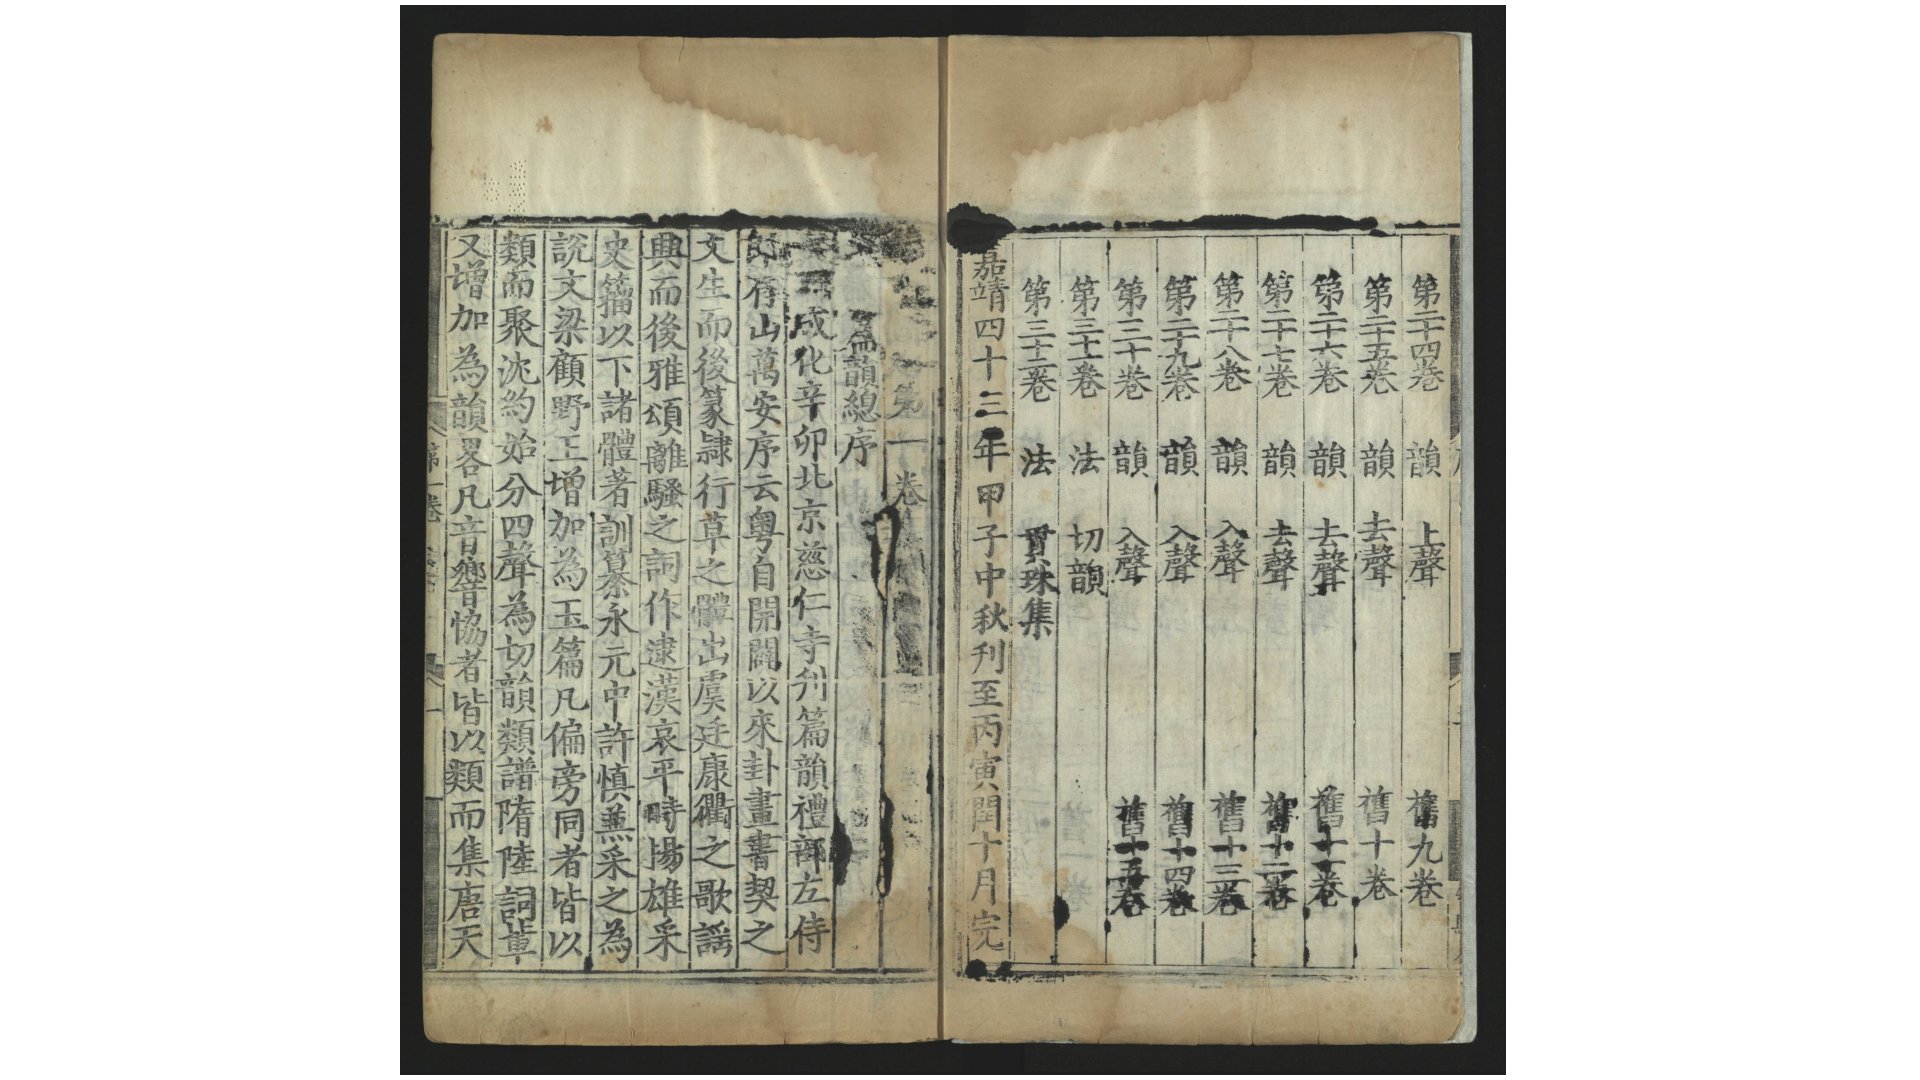 第二十四卷 韻 上聲 舊九卷
第二十五卷 韻 去聲 舊十卷
第二十六卷 韻 去聲 舊十一卷
第二十七卷 韻 去聲 舊十二卷
第二十八卷 韻 入聲 舊十三卷
第二十九卷 韻 入聲 舊十四卷
第三十卷 韻 入聲 舊十五卷
第三十一卷 法 切韻
第三十二卷 法 貫珠集
嘉靖四十三年甲子中秋刋至丙寅閏十月完
第一卷
篇韻總序
成化辛卯北京慈仁寺刋篇韻禮部左侍
郎存山萬安序云粵自開闢以來卦畫書契之
文生而後篆隷行草之體出虞廷康衢之歌謡
興而後雅頌離騷之詞作逮漢哀平時揚雄采
史籀以下諸體著訓纂永元中許慎兼采之為
說文梁顧野王增加為玉篇凡偏旁同者皆以
類而聚沈約始分四聲為切韻類譜隋陸詞軰
又增加為韻畧凡音響恊者皆以類而集唐天
第一卷